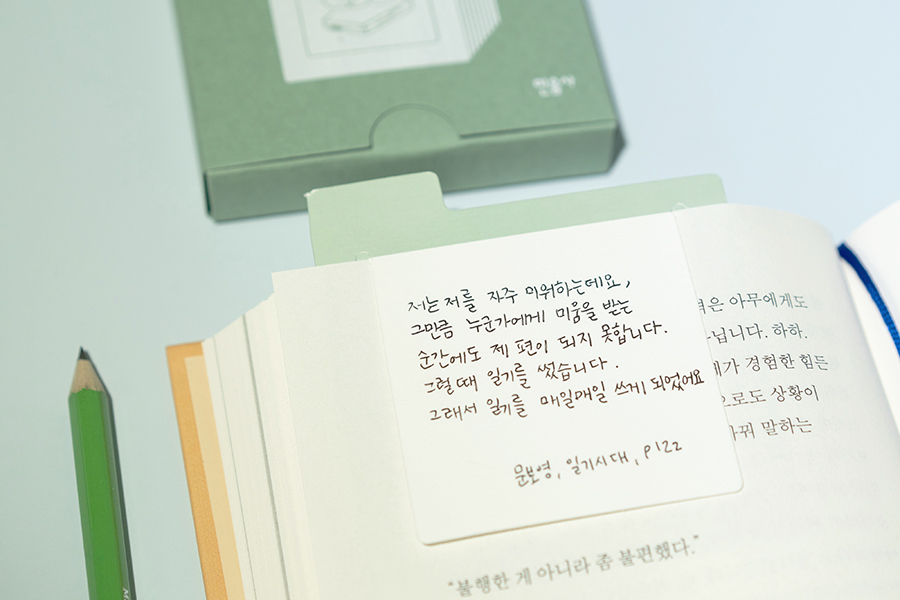 민음사
저는 저를 자주 미워하는데요,
그만큼 누군가에게 미움을 받는
순간에도 제 편이 되지 못합니다.
그럴 때 일기를 썼습니다.
그래서 일기를 매일매일 쓰게 되었어요
문보영, 일기시대, p122
은 아무에게도
닙니다. 하하.
가 경험한 힘든
로도 상황이
말하는
“불행한 게 아니라 좀 불편했다.”